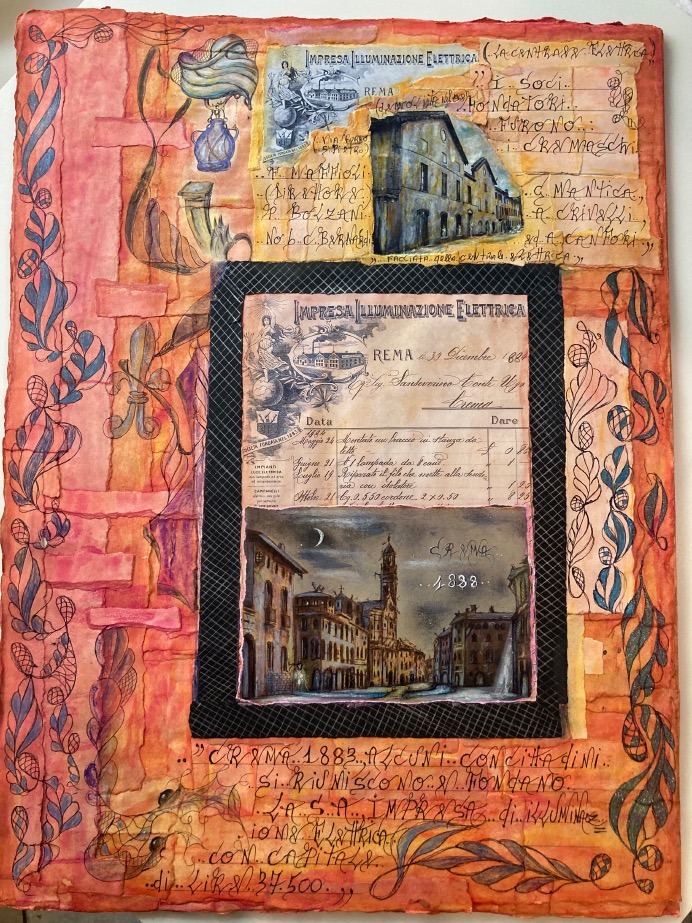 IMPRESA ILLUMINAZIONE ELETTRICA
REMA
(LA CENTRALE ELETTRICA)
" I SOCI
FONDATORI
FURONO
i CREMASCHI
F. MAFFIOLI
(DIRETTORE
P. BOLZANI
NOB. C. BERNARDI
G. MANTICA,
A. CRIVELLI,
ED A. CANTORI ,,
" FACCIATA della CENTRALE ELETTRICA "
IMPRESA ILLUMINAZIONE ELETTRICA
REMA li 31 Dicembre 1924
Sig. Sanseverino Conte Ugo
Crema
Data Dare
1924
Maggio 24 Montato un braccio in stanza da
letto 0
Giugno 21 N 1 lampada da 8 cand. 1
Luglio 19 Riparato il filo che mette alla
con isolatore
21 0.550 cordone 2 x 0.50 8 25
DITTA FONDATA NEL 1883
IMPIANTI
LUCE ELETTRICA
CAMPANELLI
CREMA
..1838..
.." CREMA 1883 ALCUNI CONCITTADINI..
SI RIUNISCONO E FONDANO
LA S.A. IMPRESA di ILLUMINAZ=
IONE ELETTRICA
..CON CAPITALE
..di LIRE 37.500.. ,,